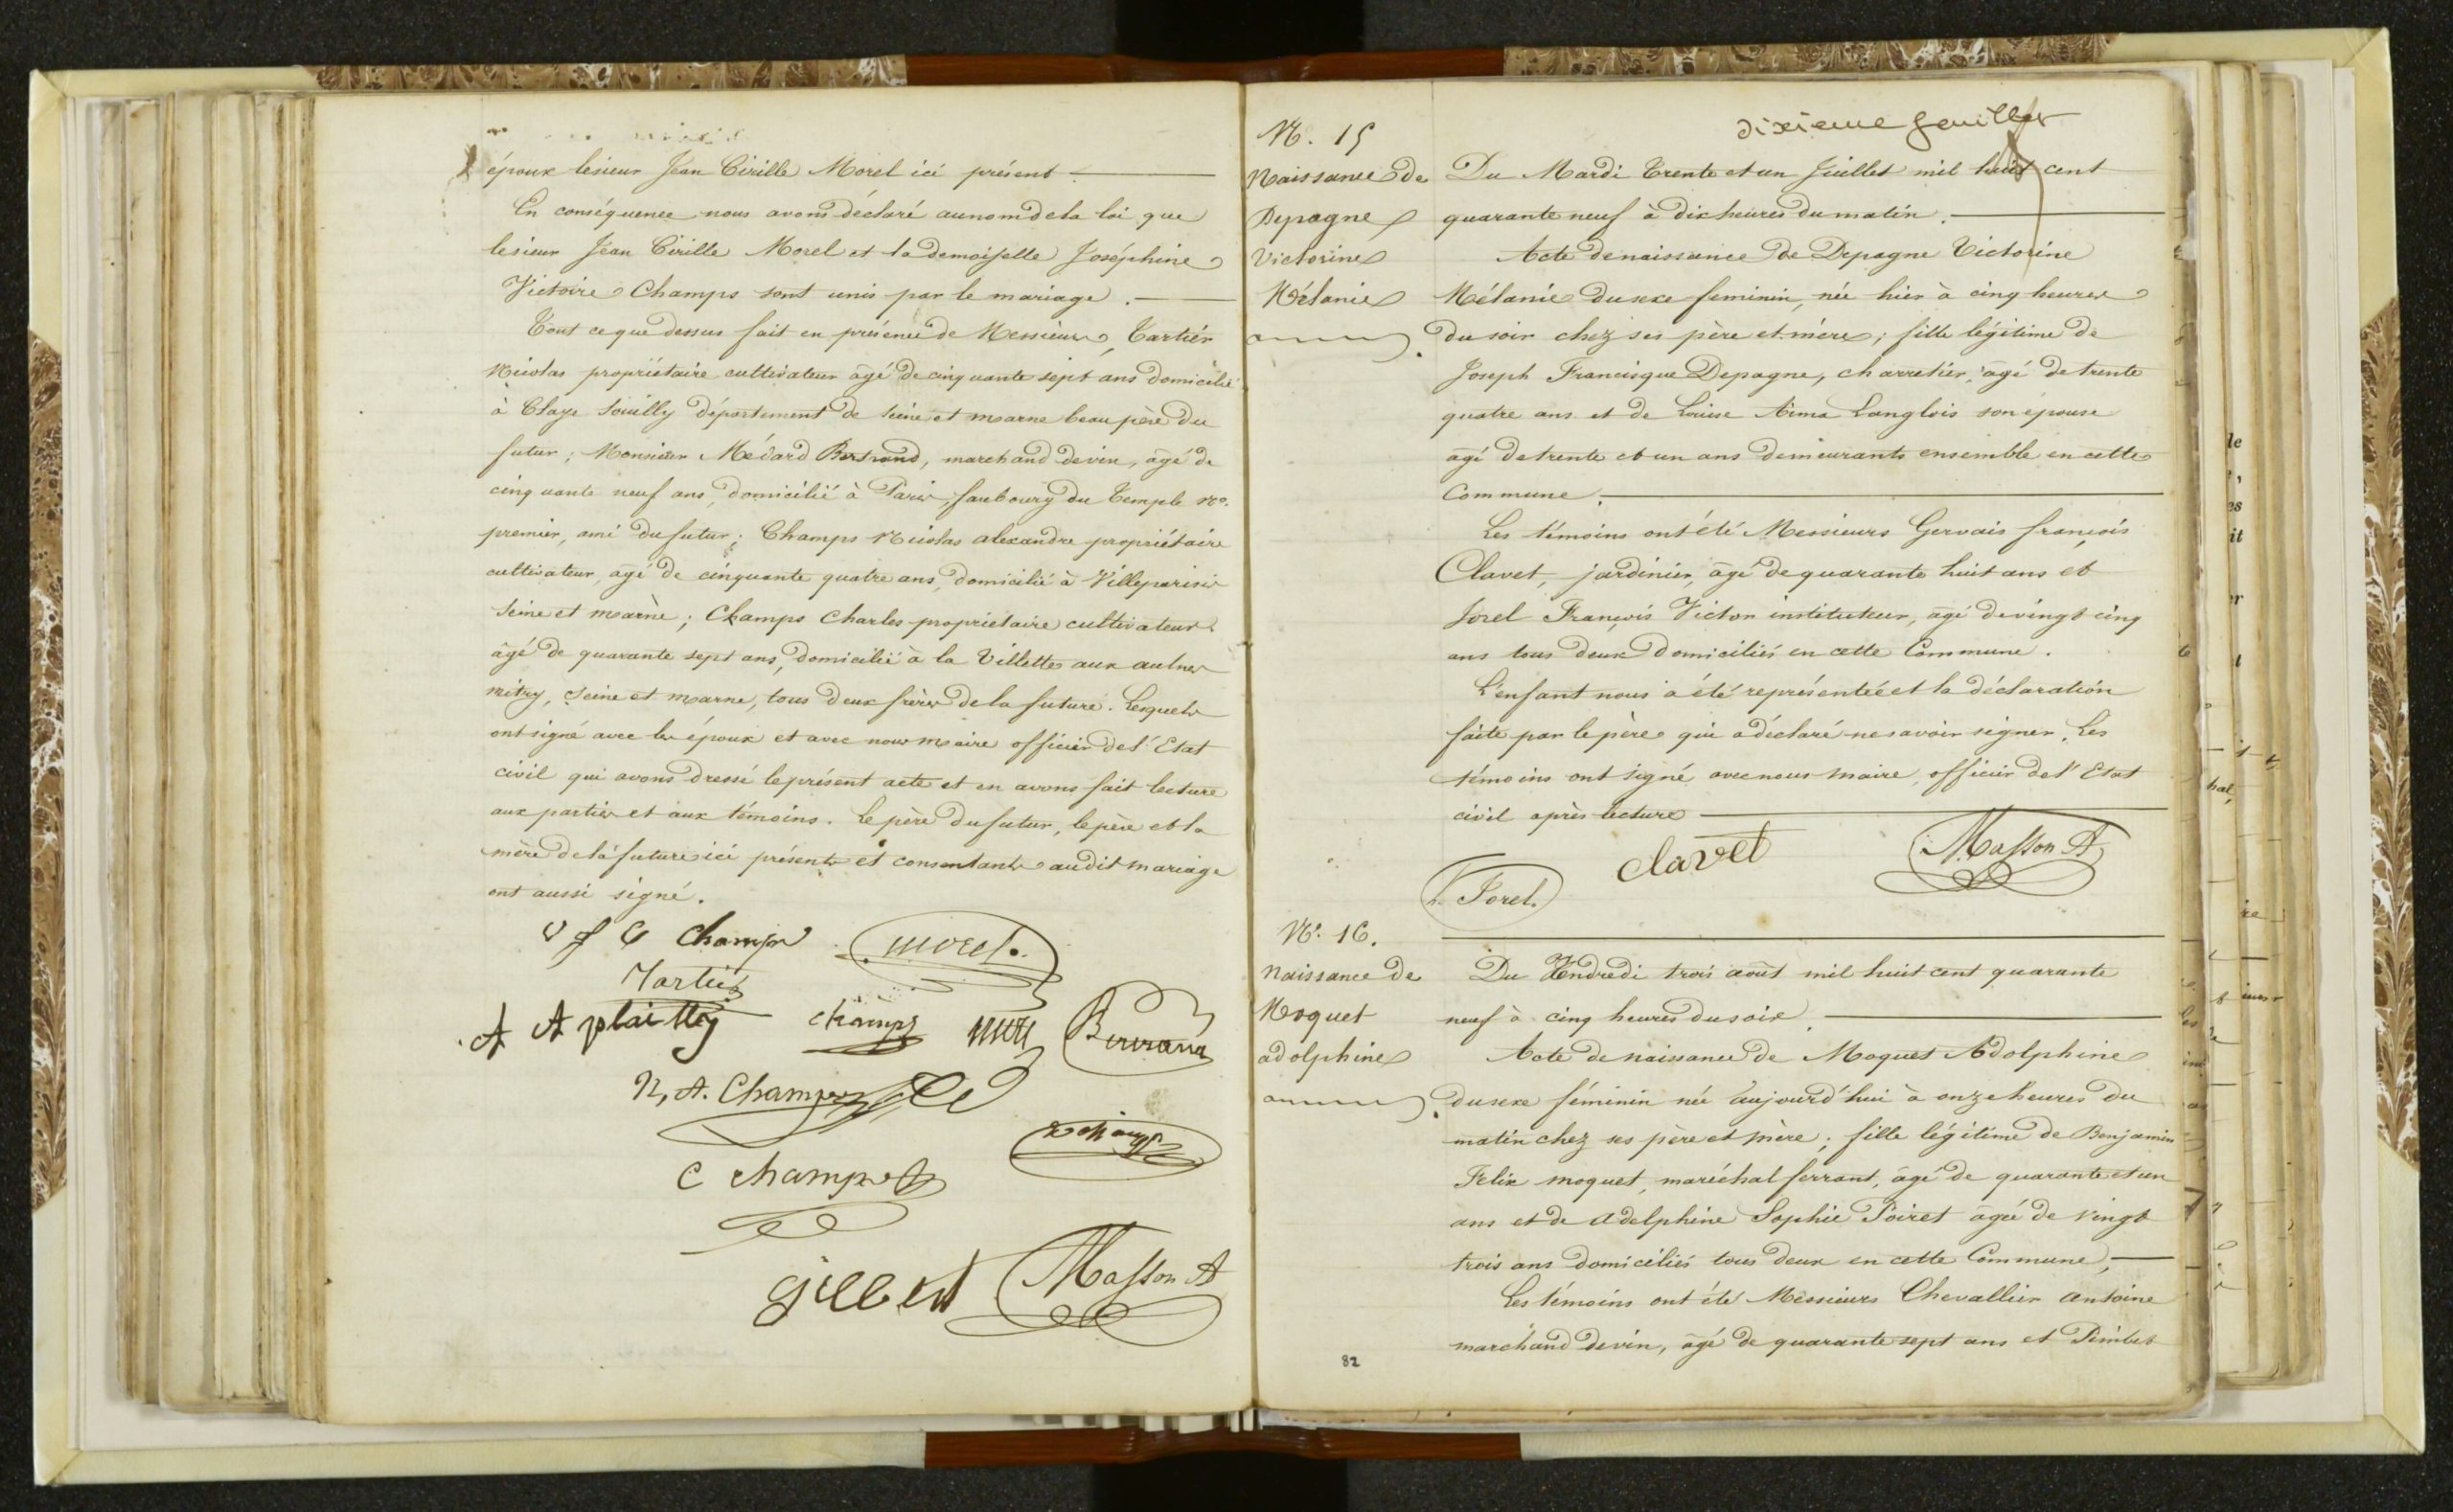 époux lesieur Jean Cirille Morel ici présent
En conséquence nous avons déclaré au nom de la loi que
lesieur Jean Cirille Morel et la demoiselle Joséphine
Victoire Champs sont unis par le mariage.
Tout ce que dessus fait en présence de Messieurs, Tartier
Nicolas propriétaire cultivateur âgé de cinquante sept ans domicilié
à Claye Souilly département de Seine et marne beau père du
futur; Monsieur Médard Bertrand, marchand de vin, âgé de
cinquante neuf ans, domicilié à Paris, faubourg du Temple No.
premier, ami du futur; Champs Nicolas alexandre propriétaire
cultivateur, âgé de cinquante quatre ans, domicilié à Villeparisis
Seine et marne; Champs Charles propriétaire cultivateur
âgé de quarante sept ans, domicilié à la Villette aux aulnes
mitry, Seine et marne, tous deux frères de la future. Lesquels
ont signé avec les époux et avec nous maire officier de l'Etat
civil qui avons dressé le présent acte et en avons fait lecture
aux parties et aux témoins. Le père du futur, le père et la
mère de la future ici présents et consentants audit mariage
ont aussi signé.
Champs morel.
Tartier
A A plaitty champs Bertrand
N, A. Champs
C champs
gilbert Masson A
dixieme feuillet
N°. 15
Naissance de
Depagne
Victorine
Mélanie
Du Mardi Trente et un Juillet mil huit cent
quarante neuf à dix heures du matin.
Acte de naissance de Depagne Victorine
Mélanie du sexe feminin, née hier à cinq heures
du soir chez ses père et mère; fille légitime de
Joseph Francisque Depagne, charretier, âgé de trente
quatre ans et de Louise Aima Langlois son épouse
âgé de trente et un ans demeurants ensemble en cette
Commune.
Les témoins ont été Messieurs Gervais françois
Clavet, jardinier, âgé de quarante huit ans et
Jorel François Victor instituteur, âgé de vingt cinq
ans tous deux domiciliés en cette Commune.
L'enfant nous a été représentée et la déclaration
faite par le père qui a déclaré ne savoir signer. Les
témoins ont signé avec nous maire, officier de l'Etat
civil après lecture
Jorel. clavet Masson A
N°. 16.
Naissance de
Moquet
adolphine
Du Vendredi trois août mil huit cent quarante
neuf à cinq heures du soir.
Acte de naissance de Moquet Adolphine
du sexe féminin née aujourd'hui à onze heures du
matin chez ses père et mère; fille légitime de Benjamin
Felix moquet, maréchal ferrant, âgé de quarante et un
ans et de adelphine Sophie Poiret âgée de vingt
trois ans domiciliés tous deux en cette Commune,
Les témoins ont été Messieurs Chevallier Antoine
marchand de vin, âgé de quarante sept ans et Pimbet
82